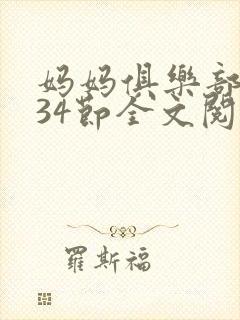 妈妈俱樂部
34節全文閱
羅斯福